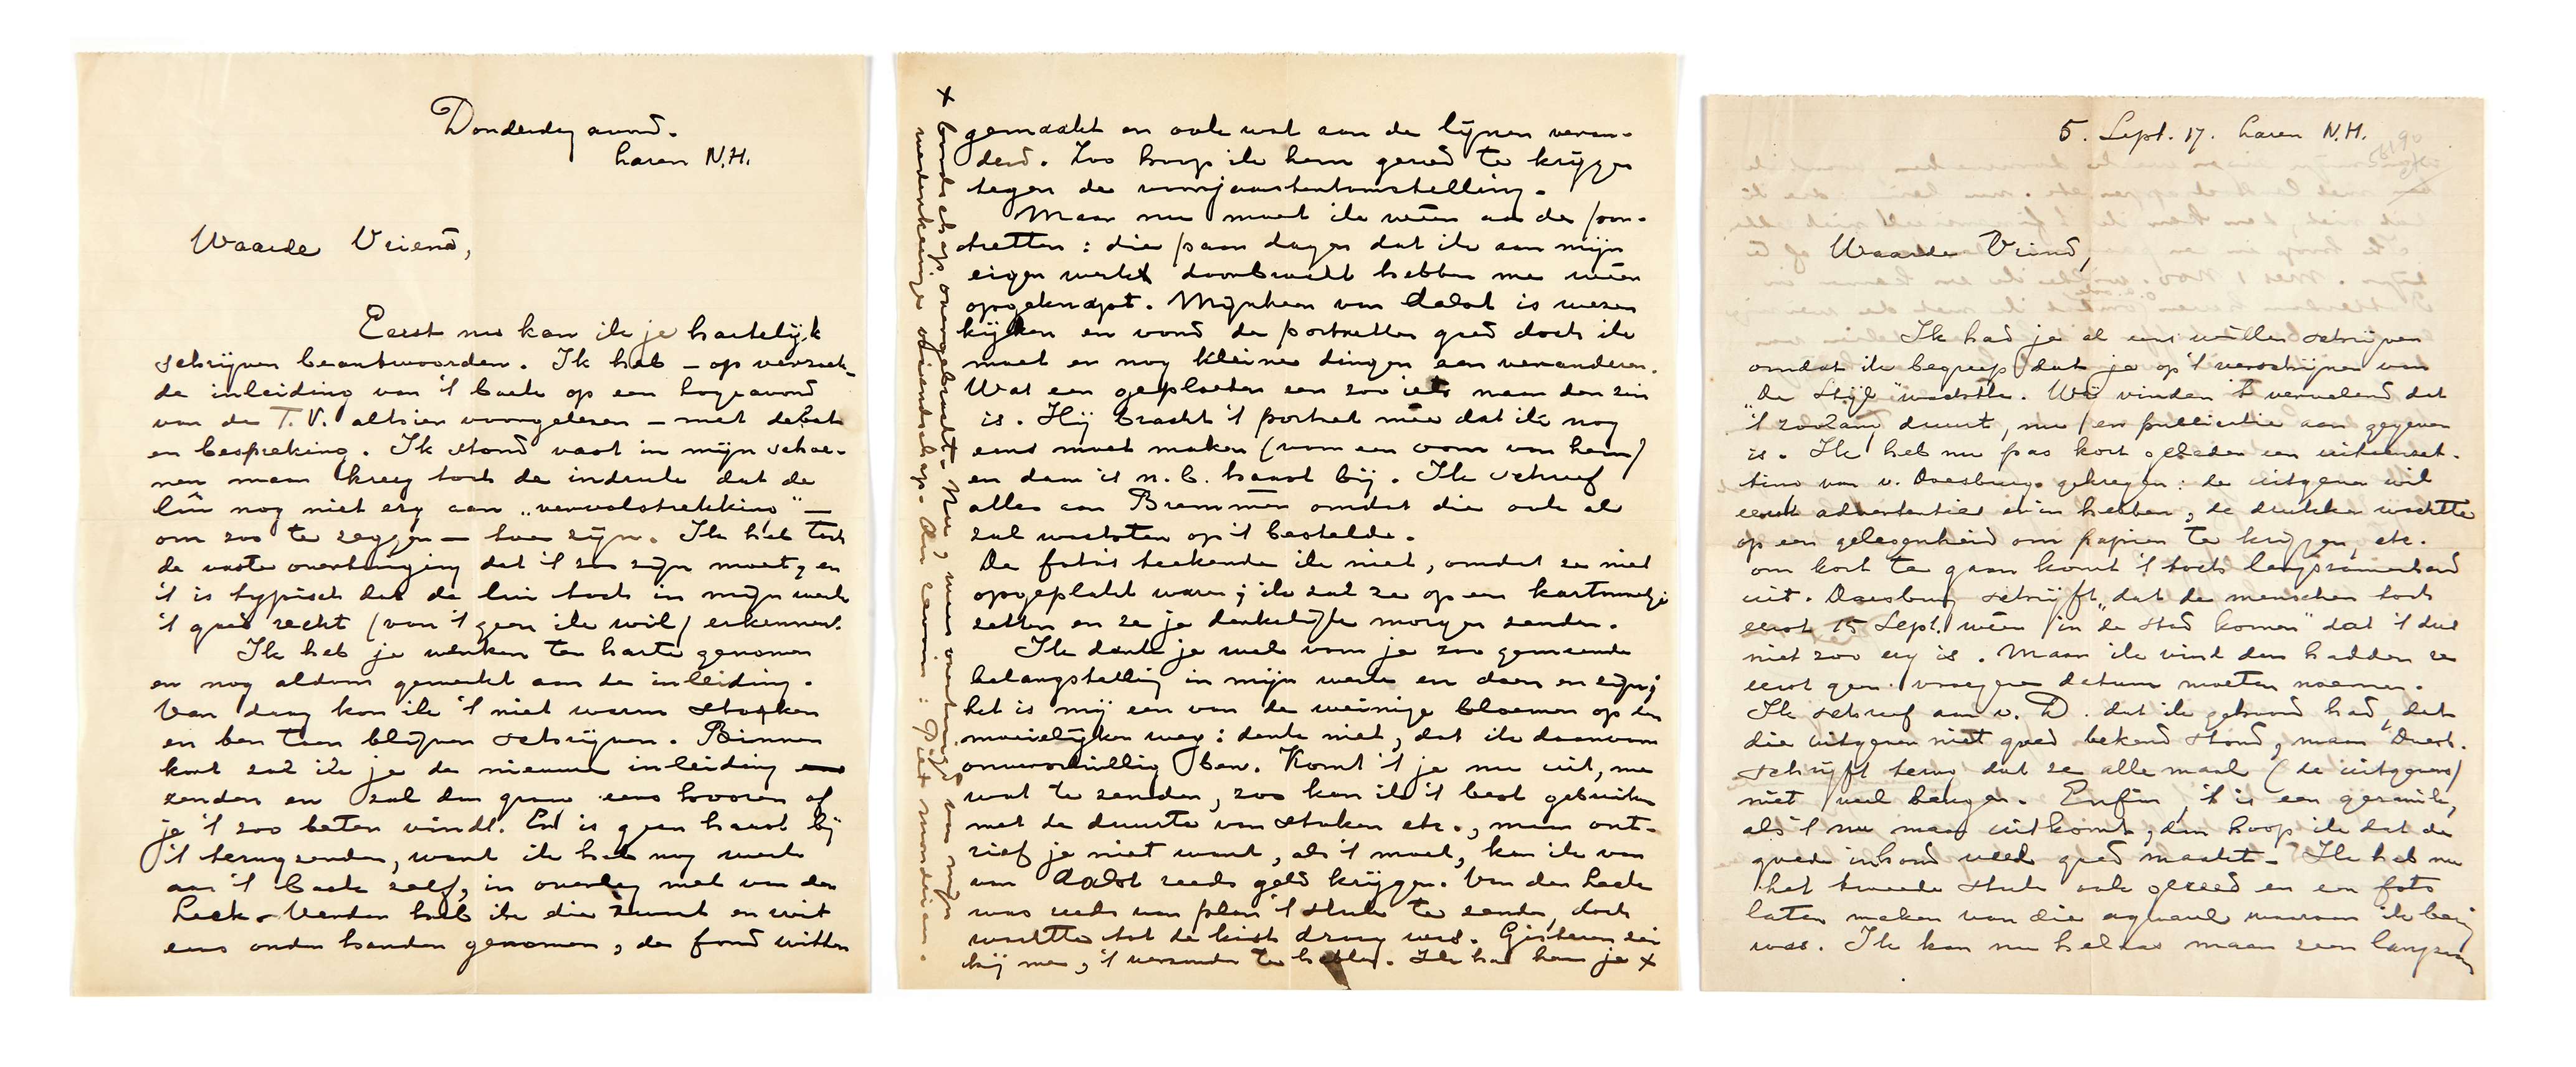 Donderdag avond.
Laren N.H.
Waarde Vriend,
Eerst nu kan ik je hartelijk
schrijven beantwoorden. Ik heb – op verzoek –
de inleiding van 't boek op een logeavond
van de T.V. alhier voorgelezen – met debat
en bespreking. Ik stond vast in mijn schoe-
nen maar kreeg toch de indruk dat de
lui nog niet erg aan „vervolstrekking” –
om zoo te zeggen – toe zijn. Ik heb toch
de vaste overtuiging dat 't zoo zijn moet, en
't is typisch dat de lui toch in mijn werk
't goed recht (van 't geen ik wil) erkennen.
Ik heb je wenken ter harte genomen
en nog aldoor gewerkt aan de inleiding.
Van daag kon ik 't niet warm stoken
en ben toen blijven schrijven. Binnen
kort zal ik je de nieuwe inleiding
zenden en zal dan graag eens hooren of
je 't zoo beter vindt. Er is geen haast bij
't terugzenden, want ik heb nog werk
aan 't boek zelf, in overleg met van der
Leck. Verder heb ik die zwart en wit
eens onder handen genomen, de fond witter
gemaakt en ook wat aan de lijnen veran-
derd. Zoo hoop ik hem gereed te krijgen
tegen de voorjaarstentoonstelling.
Maar nu moet ik weer aan de por-
tretten: die paar dagen dat ik aan mijn
eigen werk doorbracht hebben me weer
opgeknapt. Mijnheer van Aalst is wezen
kijken en vond de portretten goed doch ik
moet er nog kleine dingen aan veranderen.
Wat een geploeter eer zoo iets naar den zin
is. Hij bracht 't portret mee dat ik nog
eens moet maken (voor een oom van hem)
en daar is n.b. haast bij. Ik schreef
alles aan Bremmer omdat die ook al
zal wachten op 't bestelde.
De foto's teekende ik niet, omdat ze niet
opgeplakt waren; ik zal ze op een kartonnetje
zetten en ze je denkelijk morgen zenden.
Ik dank je wel voor je zoo gemeende
belangstelling in mijn werk en doen en zijn;
het is mij een van de weinige bloemen op den
moeielijken weg: denk niet, dat ik daarvoor
onverschillig ben. Komt 't je nu uit, me
wat te zenden, zoo kan ik 't best gebruiken
met de duurte van stoken etc., maar ont-
rief je niet want, als 't moet, kan ik van
van Aalst reeds geld krijgen. Van der Leck
was reeds van plan 't stuk te zenden, doch
wachtte tot de kist droog was. Gisteren zei
hij me, 't verzonden te hebben. Ik had hem je x
x boodschap overgebracht. Nu, wees overtuigd van mijn
wederkeerige vriendschap. Als steeds: Piet Mondriaan.
5. Sept. 17. Laren N.H.
Waarde Vriend,
Ik had je al eens willen schrijven
omdat ik begreep dat je op 't verschijnen van
„De Stijl” wachtte. Wij vinden 't vervelend dat
't zoolang duurt, nu er publicatie aan gegeven
is. Ik heb nu pas kort geleden een uiteenzet-
ting van v. Doesburg gekregen: de uitgever wil
eerst advertenties erin hebben, de drukker wachtte
op een gelegenheid om papier te krijgen, etc.
om kort te gaan komt 't toch langzamerhand
uit. Doesburg schrijft „dat de menschen toch
eerst 15 Sept. weer in de stad komen” dat 't dus
niet zoo erg is. Maar ik vind dan hadden ze
eerst geen vroegere datum moeten noemen.
Ik schreef aan v. D. dat ik gehoord had, dat
die uitgever niet goed bekend stond, maar Doesb.
schrijft terug dat ze allemaal (de uitgevers)
niet veel deugen. Enfin, 't is een geruïk,
als 't nu maar uitkomt, dan hoop ik dat de
goede inhoud veel goed maakt. Ik heb nu
het tweede stuk ook gereed en een foto
laten maken van die aquarel waaraan ik bezig
was. Ik kan nu helaas maar zeer langzaam